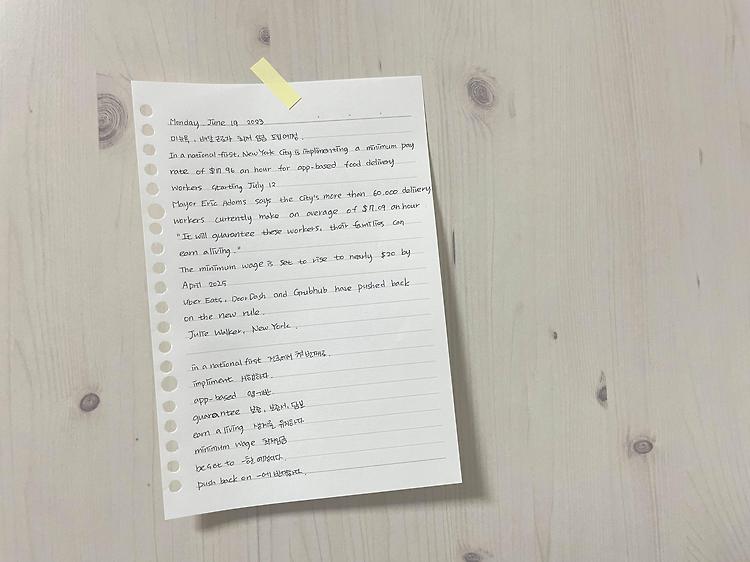 Monday June 19 2023
미뉴욕, 배달 근로자 최저 임금 도입 예정.
In a national first, New York City is implimenting a minimum pay
rate of $17.96 an hour for app-based food delivery
workers starting July 12
Mayor Eric Adams says the City's more than 60.000 delivery
workers currently make an average of $7.09 an hour
"It will guarantee these workers, their families can
earn a living."
The minimum wage is set to rise to nearly $20 by
April 2025
Uber Eats, DoorDash and Grubhub have pushed back
on the new rule.
Julie Walker, New York.
in a national first 전국에서 첫 번째로
impliment 시행하다.
app-based 앱기반
guarantee 보증, 보증서, 담보
earn a living 생계를 유지하다
minimum wage 최저임금
be set to -할 예정이다.
push back on -에 반대하다.